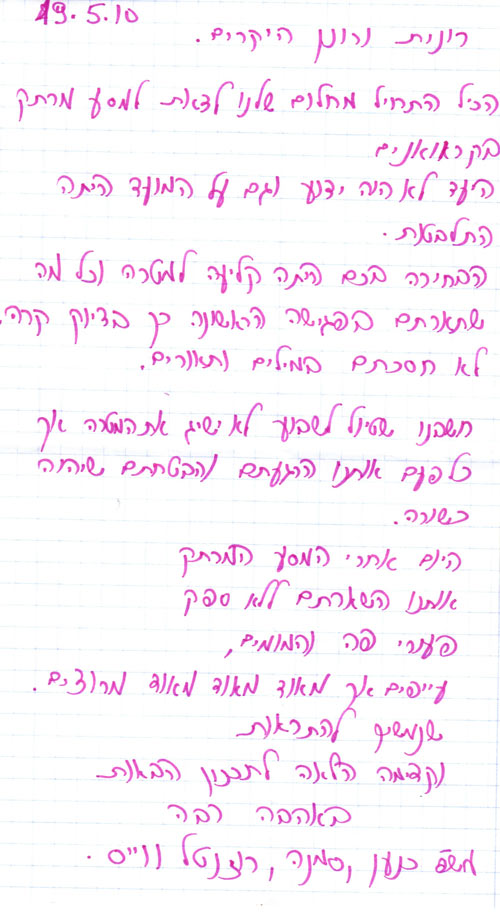 19.5.10
רונית ורונן היקרים.
הכל התחיל מחלום שלנו לצאת למסע מרתק
בקרוואנים
היעד לא היה ידוע וגם על המועד היתה
התלבטות.
הבחירה בכם היתה קליעה למטרה וכל מה
שתארתם בפגישה הראשונה כך בדיוק קרה,
לא חסכתם במילים ותאורים.
חשבנו שטיול לשבוע לא ישיג את המטרה אך
כל פעם אותנו הרגעתם והבטחתם שיהיה
כשורה.
היום אחרי המסע המרתק
אותנו השארתם ללא ספק
פעורי פה והמומים,
עייפים אך מאוד מאוד מאוד מרוצים.
שנמשיך להתראות
וקדימה הלאה לתכנון הבאות
באהבה רבה
משפ' כנען, סמנה, רוזנטל ווייס.